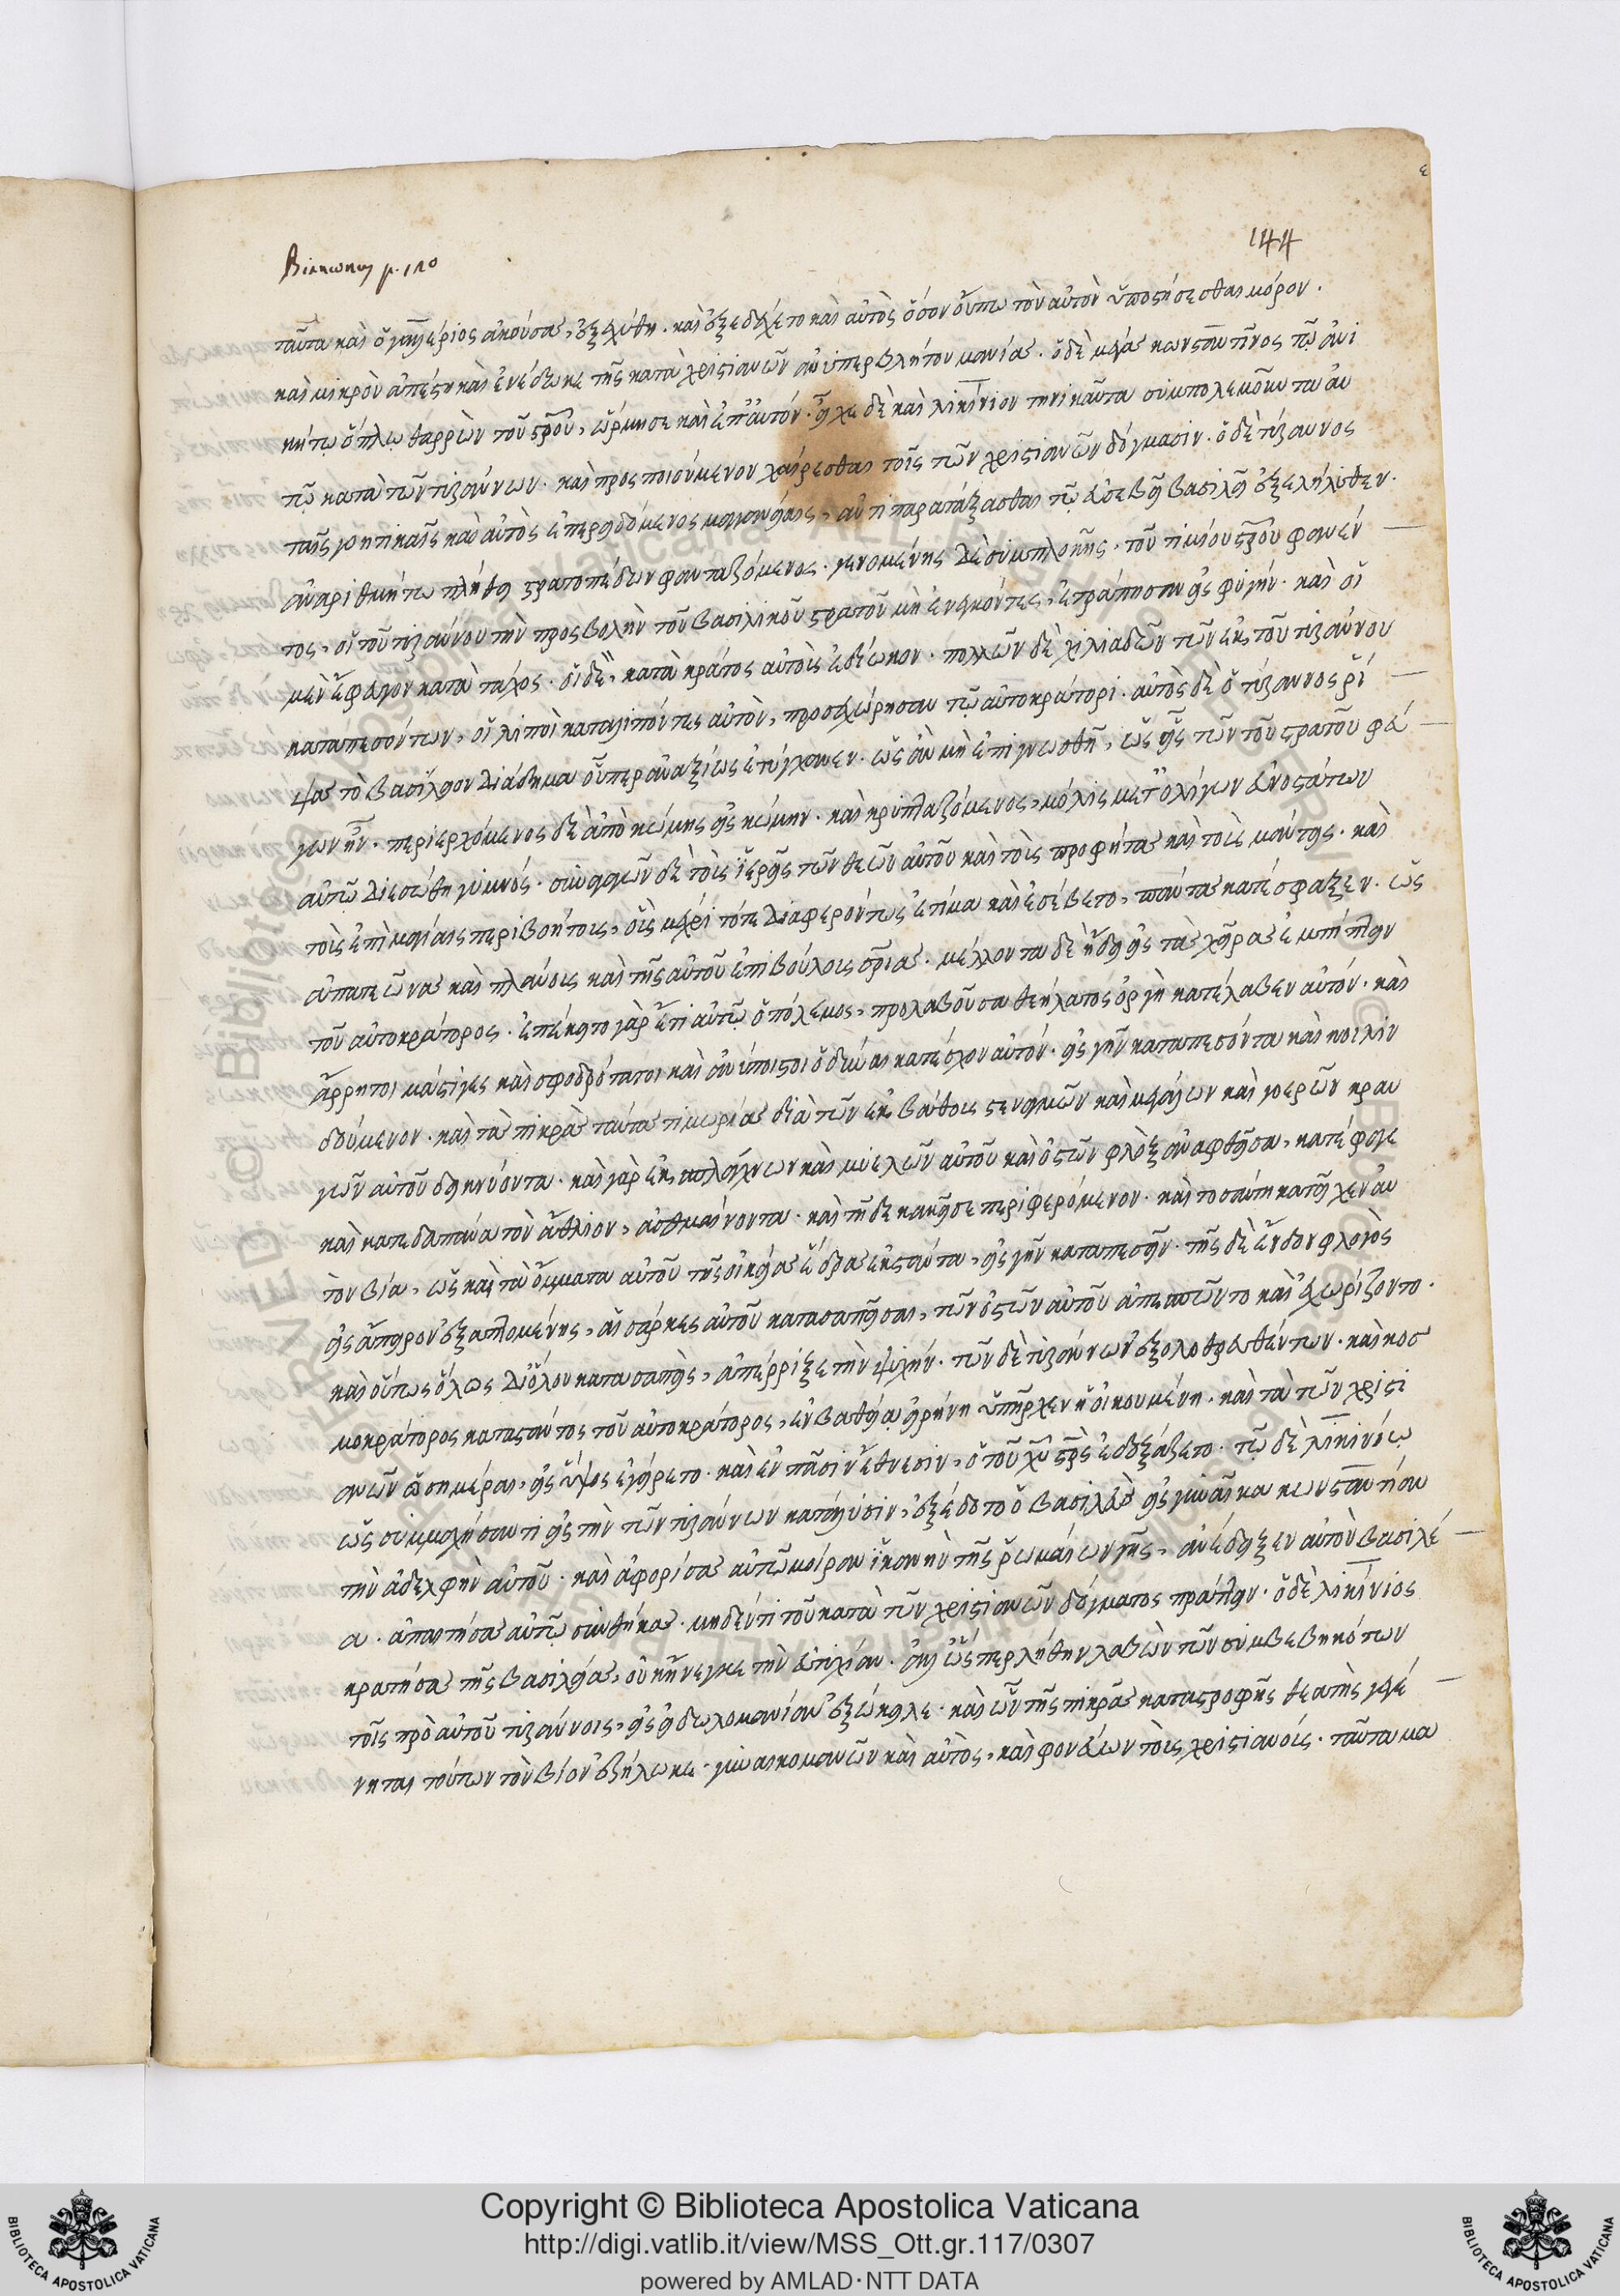 144
ταῦτα καὶ ὁ γαλέριος ἀκούσας, ἐξελύθη. καὶ ἐξεδέχετο καὶ αὐτὸς ὅσον οὔπω τὸν αὐτὸν ὑποστήσεσθαι μόρον.
καὶ μικρὸν ἀπέστη καὶ ἐνέδωκε τῆς κατὰ χριστιανῶν ἀνυπερβλήτου μανίας. ὁ δὲ μέγας κωνσταντῖνος τῷ ἀνι
κήτῳ ὅπλῳ θαρρῶν τοῦ στροῦ, ὥρμησε καὶ ἐπ' αὐτόν. εἶχε δὲ καὶ λικίνιον τηνικαῦτα συμπολεμοῦντα ἀυ
τῷ κατὰ τῶν τυράννων. καὶ προσποιούμενον χαίρεσθαι τοῖς τῶν χριστιανῶν δόγμασιν. ὁ δὲ τύραννος
ταῖς γοητικαῖς καὶ αὐτὸς ἐπερειδόμενος μαγγανείαις, ἀντιπαρατάξασθαι τῷ εὐσεβεῖ βασιλεῖ ἐξελήλυθεν.
ἀναριθμήτω πλήθει στρατοπέδων φανταζόμενος. γενομένης δὲ συμπλοκῆς, τοῦ τιμίου στροῦ φανέν
τος, οἱ τοῦ τυράννου τὴν προσβολὴν τοῦ βασιλικοῦ στρατοῦ μὴ ἐνεγκόντες, ἐτράπησαν εἰς φυγήν. καὶ οἱ
μὲν ἔφευγον κατὰ τάχος. οἱ δὲ, κατὰ κράτος αὐτοὺς ἐδίωκον. πολλῶν δὲ χιλιαδῶν τῶν ἐκ τοῦ τυράννου
καταπεσόντων, οἱ λιποὶ καταλιπόντες αὐτὸν, προσεχώρησαν τῷ αὐτοκράτορι. αὐτὸς δὲ ὁ τύραννος ῥί
ψας τὸ βασίλειον διάδημα οὗπερ ἀναξίως ἐτύγχανεν. ὡς ἂν μὴ ἐπιγνωσθῆ, ὡς εἷς τῶν τοῦ στρατοῦ φεύ
γων ἦν. περιερχόμενος δὲ ἀπὸ κώμης εἰς κώμην. καὶ κρυπταζόμενος, μόλις μετ' ὀλίγων εὐνοστάτων
αὐτῷ διεσώθη γυμνός. συναγαγὼν δὲ τοὺς ἱερεῖς τῶν θεῶν αὐτοῦ καὶ τοὺς προφήτας καὶ τοὺς μάντεις. καὶ
τοὺς ἐπὶ μαγίαις περιβοήτους, οὓς μέχρι τότε διαφερόντως ἐτίμα καὶ ἐσέβετο, πάντας κατέσφαξεν. ὡς
ἀπατεῶνας καὶ πλάνους καὶ τῆς αὐτοῦ ἐπιβούλους σρίας. μέλλοντα δὲ ἤδη εἰς τὰς χεῖρας ἐμπίπτειν
τοῦ αὐτοκράτορος. ἐπέκειτο γὰρ ἐπ' αὐτῷ ὁ πόλεμος, προλαβοῦσα θεήλατος ὀργὴ κατέλαβεν αὐτόν. καὶ
ἄρρητοι μάστιγες καὶ σφοδρόταται καὶ ἀνύποιστοι ὀδύναι κατέσχον αὐτόν. εἰς γῆν καταπεσόντα καὶ κοιλιν
δούμενον. καὶ τὰς πικρὰς ταύτας τιμωρίας διὰ τῶν ἐκ βάθους στεναγμῶν καὶ μεγάλων καὶ γοερῶν κραυ
γῶν αὐτοῦ δεικνύοντα. καὶ γὰρ ἐκ σπλάγχνων καὶ μυελῶν αὐτοῦ καὶ ὀστῶν φλὸξ ἀναφθεῖσα, κατέφαγε
καὶ κατεδαπάνα τὸν ἄθλιον, ἀσθμαίνοντα. καὶ τῆδε κακεῖσε περιφερόμενον. καὶ τοσαύτη κατεῖχεν ἀυ
τὸν βία, ὡς καὶ τὰ ὄμματα αὐτοῦ τῆς οἰκείας ἕδρας ἐκστάντα, εἰς γῆν καταπεσεῖν. τῆς δὲ ἔνδον φλογὸς
εἰς ἄπειρον ἐξαπτομένης, αἱ σάρκες αὐτοῦ κατασαπεῖσαι, τῶν ὀστῶν αὐτοῦ ἀπεσπῶντο καὶ ἐχωρίζοντο.
καὶ οὕτως ὅλως δι' ὅλου κατασαπεὶς, ἀπέρριξε τὴν ψυχήν. τῶν δὲ τυράννων ἐξολοθρευθέντων. καὶ κοσ
μοκράτορος καταστάντος τοῦ αὐτοκράτορος, ἐν βαθεία εἰρήνη ὑπῆρχεν ἡ οἰκουμένη. καὶ τὰ τῶν χριστι
ανῶν ὁσημέραι, εἰς ὕψος ἐγείρετο. καὶ ἐν πᾶσιν ἔθνεσιν, ὁ τοῦ χυ στρὸς ἐδοξάζετο. τῷ δὲ λικινίῳ
ὡς συμμαχήσαντι εἰς τὴν τῶν τυράννων κατάλυσιν, ἐξέδοτο ὁ βασιλεὺς εἰς γυναῖκα κωνσταντίαν
τὴν ἀδελφὴν αὐτοῦ. καὶ ἀφορίσας αὐτῷ μοίραν ἱκανὴν τῆς ῥωμαίων γῆς, ἀνέδειξεν αὐτὸν βασιλέ
α. ἀπαιτήσας αὐτῷ συνθήκας. μηδέν τι τοῦ κατὰ τῶν χριστιανῶν δόγματος πράττειν. ὁ δὲ λικίνιος
κρατήσας τῆς βασιλείας, οὐκ ἤνεγκε τὴν εὐτυχίαν. ἀλλ' ὥσπερ λήθην λαβὼν τῶν συμβεβηκότων
τοῖς πρὸ αὐτοῦ τυράννοις, εἰς εἰδωλομανίαν ἐξώκειλε. καὶ ὧν τῆς πικρᾶς καταστροφῆς θεατὴς γεγέ
νηται τούτων τὸν βίον ἐζήλωκε. γυναικομανῶν καὶ αὐτὸς, καὶ φονεύων τοὺς χριστιανούς. ταῦτα μα
Copyright © Biblioteca Apostolica Vaticana
http://digi.vatlib.it/view/MSS_Ott.gr.117/0307
powered by AMLAD·NTT DATA
BIBLIOTECA APOSTOLICA VATICANA
BIBLIOTECA APOSTOLICA VATICANA